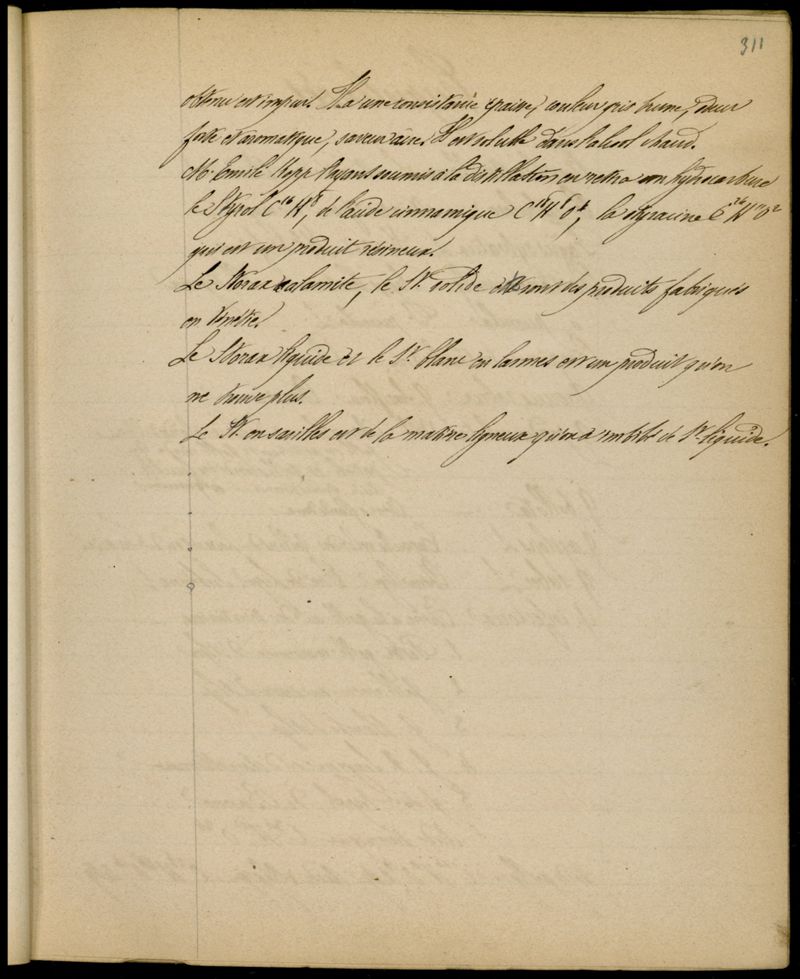 311
obtenu est impur. Il a une consistance épaisse, couleur gris brune, odeur
forte et aromatique, saveur âcre. Il est soluble dans l'alcool chaud.
Mr Emile Kopp l'ayant soumis à la distillation en retira un hydrocarbure
le Styrol C16 H8, de l'acide cinnamique C18 H8 O4, la styracine
qui est un produit résineux.
Le Storax calamite, le St. solide sont des produits fabriqués
en
Le Storax liquide et le St. blanc en larmes est un produit qu'on
ne trouve plus.
Le St. en écailles est de la matière ligneuse qu'on a imbibé de St. liquide.